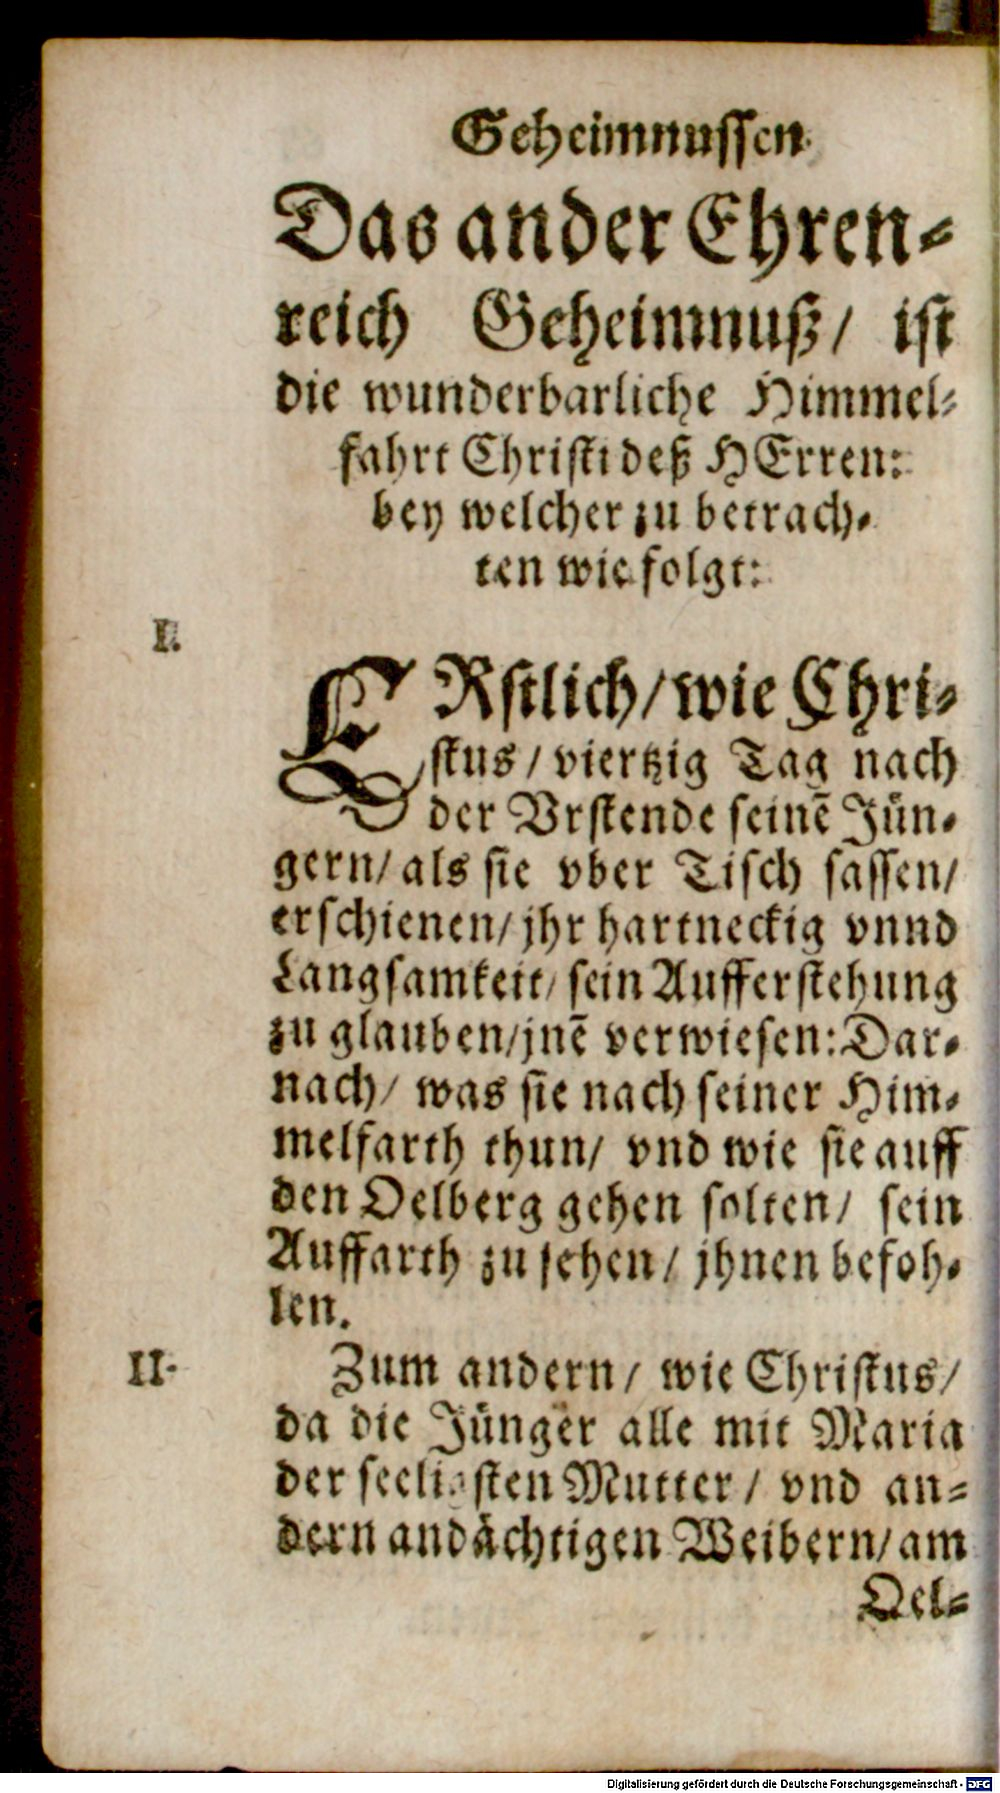 Geheimnussen
Das ander Ehren-
reich Geheimnuß/ ist
die wunderbarliche Himmel-
fahrt Christi deß HErren:
bey welcher zu betrach-
ten wie folgt:
I.
ERstlich/ wie Chri-
stus/ viertzig Tag nach
der Vrstende seinē Jün-
gern/ als sie vber Tisch sassen/
erschienen/ jhr hartneckig vnnd
Langsamkeit/ sein Aufferstehung
zu glauben/ jnē verwiesen: Dar-
nach/ was sie nach seiner Him-
melfarth thun/ vnd wie sie auff
den Oelberg gehen solten/ sein
Auffarth zu sehen/ jhnen befoh-
len.
II.
Zum andern/ wie Christus/
da die Jünger alle mit Maria
der seeligsten Mutter/ vnd an-
dern andächtigen Weibern/ am
Oel-
Digitalisierung gefördert durch die Deutsche Forschungsgemeinschaft - DFG